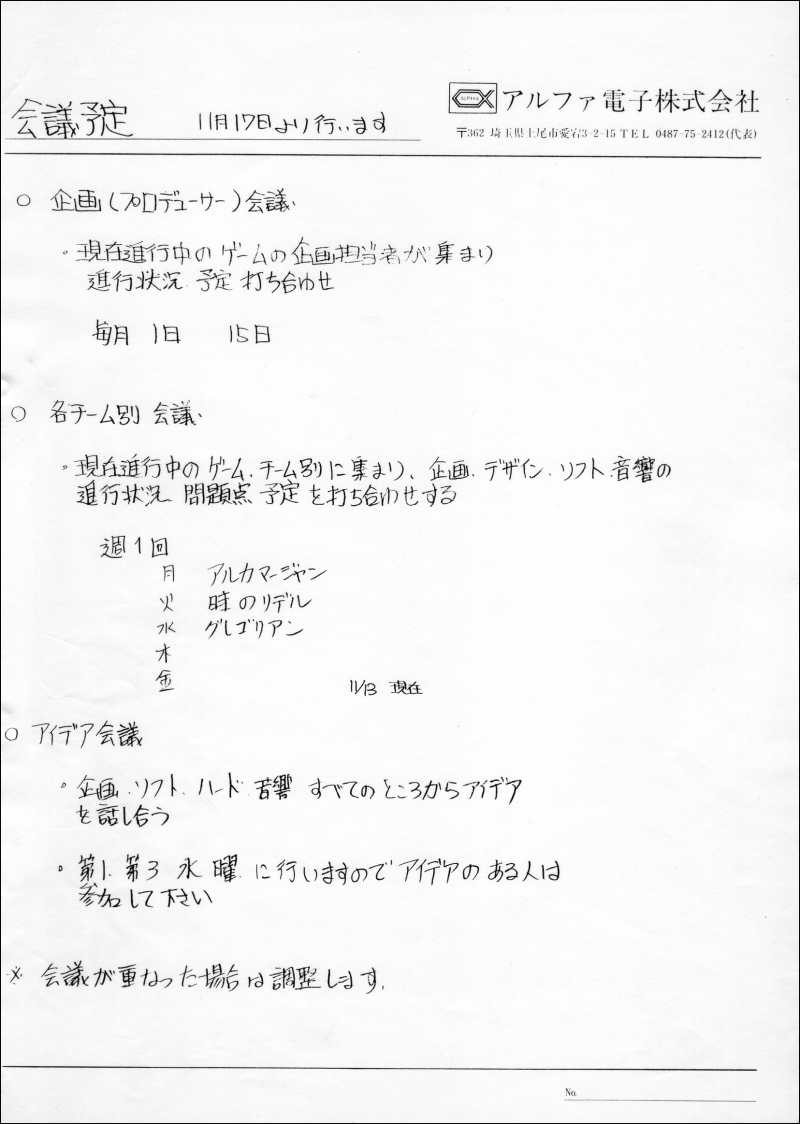 会議予定 11月17日より行います
ALPHA アルファ電子株式会社
〒362 埼玉県上尾市愛宕3-2-15 TEL 0487-75-2412(代表)
○ 企画(プロデューサー)会議
・現在進行中のゲームの企画担当者が集まり
進行状況 予定 打ち合わせ
毎月 1日 15日
○ 各チーム別 会議
・現在進行中のゲーム、チーム別に集まり、企画、デザイン、ソフト、音響の
進行状況 問題点 予定を打ち合わせする
週1回
月 アルカマージャン
火 時のリデル
水 グレゴリアン
木
金
11/13 現在
○ アイデア会議
・企画、ソフト、ハード、音響 すべてのところからアイデア
を話し合う
・第1、第3 水曜 に行いますので アイデアのある人は
参加して下さい
※ 会議が重なった場合は調整します。
No.